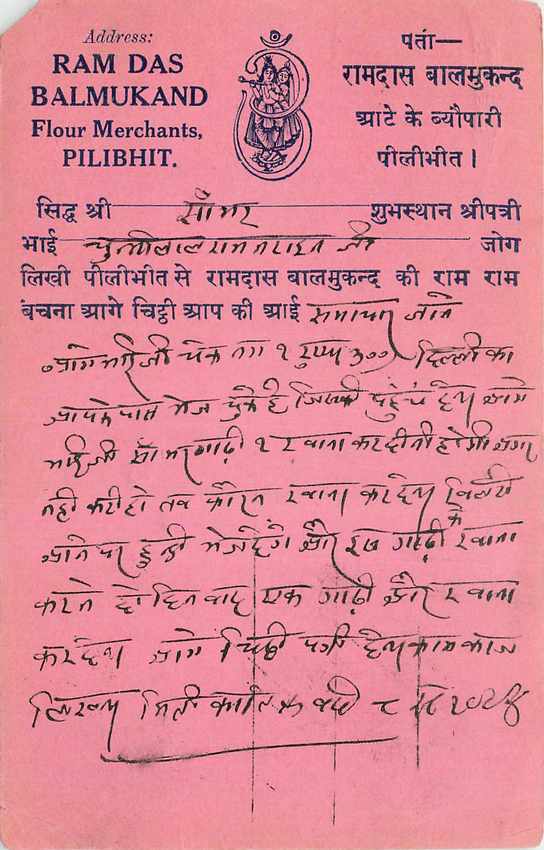 Address:
RAM DAS
BALMUKAND
Flour Merchants,
PILIBHIT.
पता—
रामदास बालमुकन्द
आटे के ब्यौपारी
पीलीभीत।
सिद्ध श्री साँभर शुभस्थान श्रीपत्री
भाई चुन्नीलाल रामनराइन जी जोग
लिखी पीलीभीत से रामदास बालमुकन्द की राम राम
बंचना आगे चिट्ठी आप की आई समाचार जाने
आगे भाई जी चेक १ रुपया दिल्ली का
आपके पास भेज चुके है जिसकी पहुंच देना आगे
भाई जी साँभर गाढ़ी १ रवाना कर दीनी होगी अगर
नही करी हो तब फौरन रवाना कर देना बिल्टी
आने पर हुन्डी भेज देंगे और इस गाढ़ी के रवाना
करने दो दिन बाद एक गाढ़ी और रवाना
कर देना आगे चिठ्ठी देना काम काज
लिखना मिती कातिक बदी ८